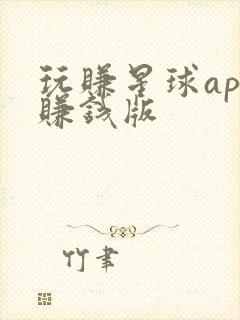 玩赚星球ap
赚钱版
竹聿